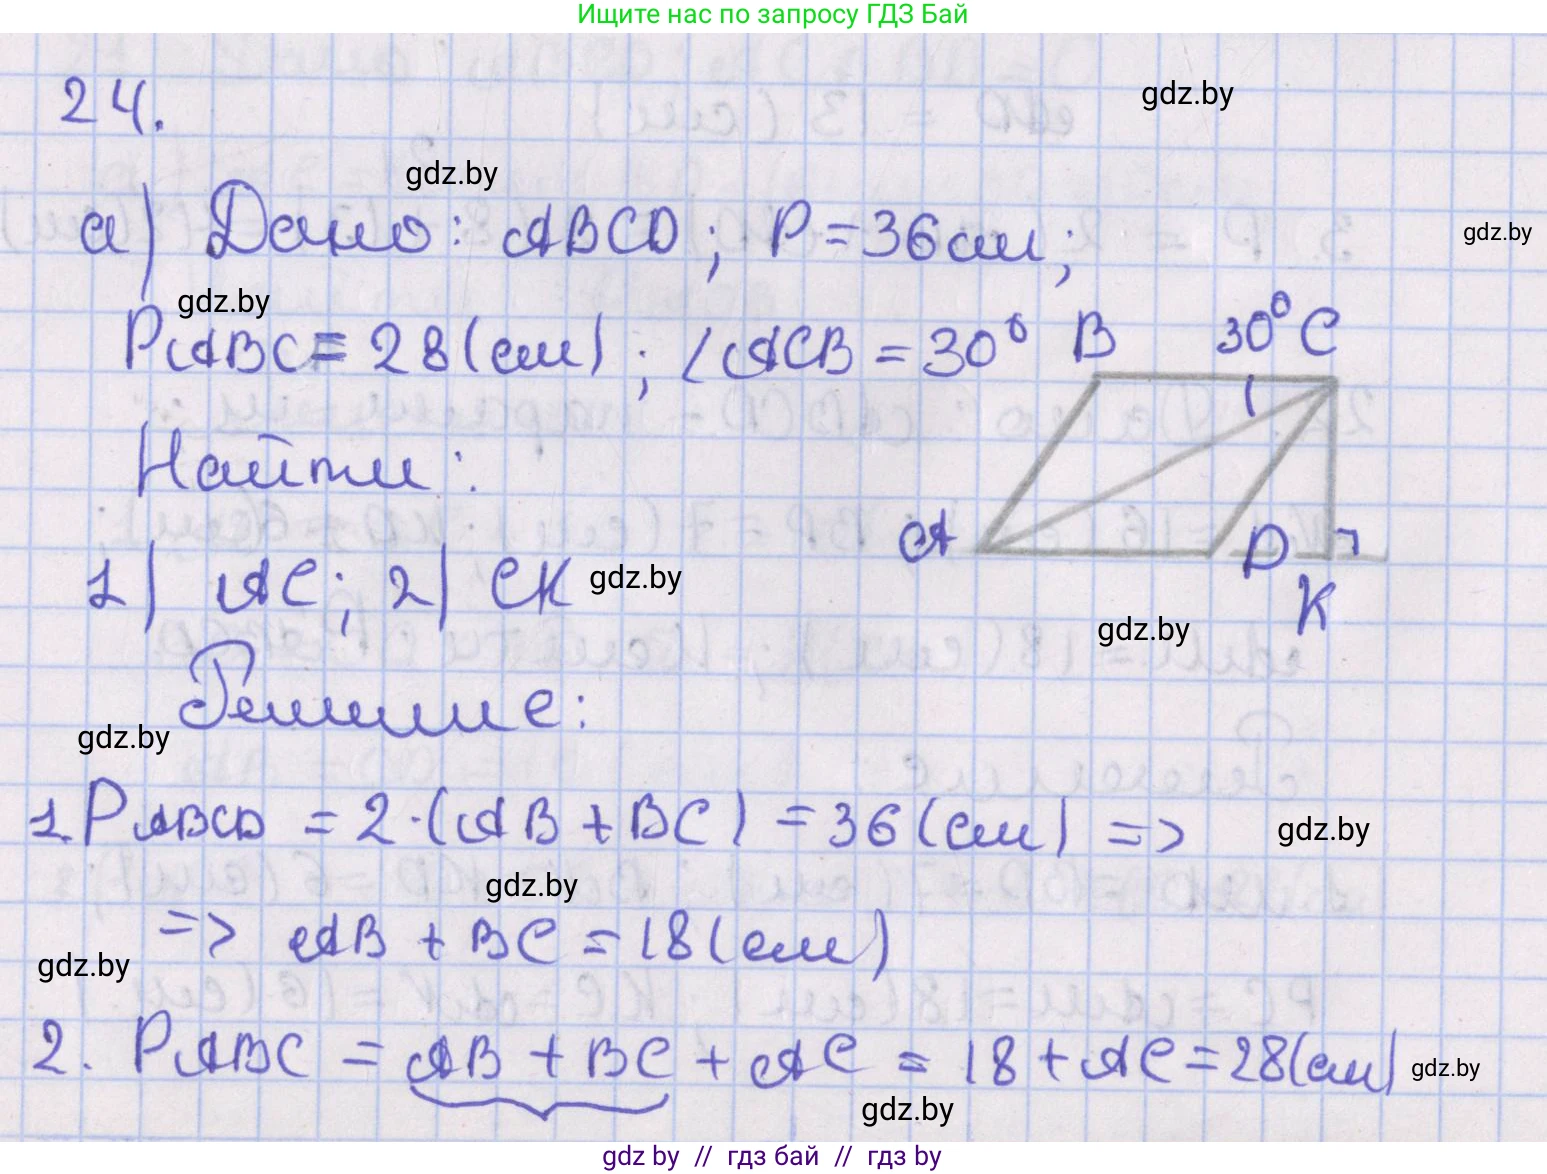 Ищите нас по запросу ГДЗ Бай
24.
gdz.by
gdz.by
а) Дано: ABCD; P = 36 см;
gdz.by
gdz.by
PABC = 28 (см); ∠ACB = 30°
B 30° C
Найти:
A D K
1) AC; 2) CK
gdz.by
gdz.by
Решние:
gdz.by
1. PABCD = 2·(AB + BC) = 36 (см) =>
gdz.by
gdz.by
=> AB + BC = 18 (см)
gdz.by
2. PABC = AB + BC + AC = 18 + AC = 28 (см)
gdz.by
gdz.by
gdz by // гдз бай // гдз by